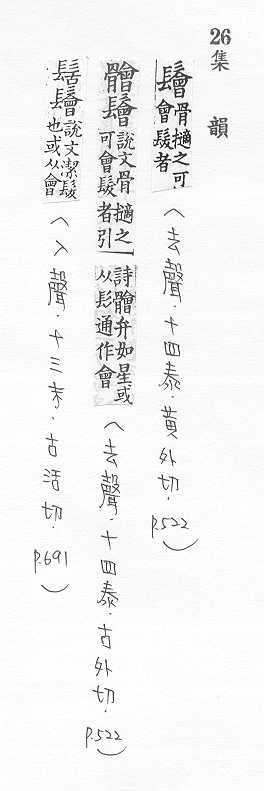 26 集韻
鬠 骨擿之可會髮者 （去聲．十四泰．黃外切．P.522）
䯤鬠 說文骨擿之可會髮者引詩䯤弁如星或从髟通作會 （去聲．十四泰．古外切．P.522）
髺鬠 說文潔髮也或从會 （入聲．十三末．古活切．P.691）